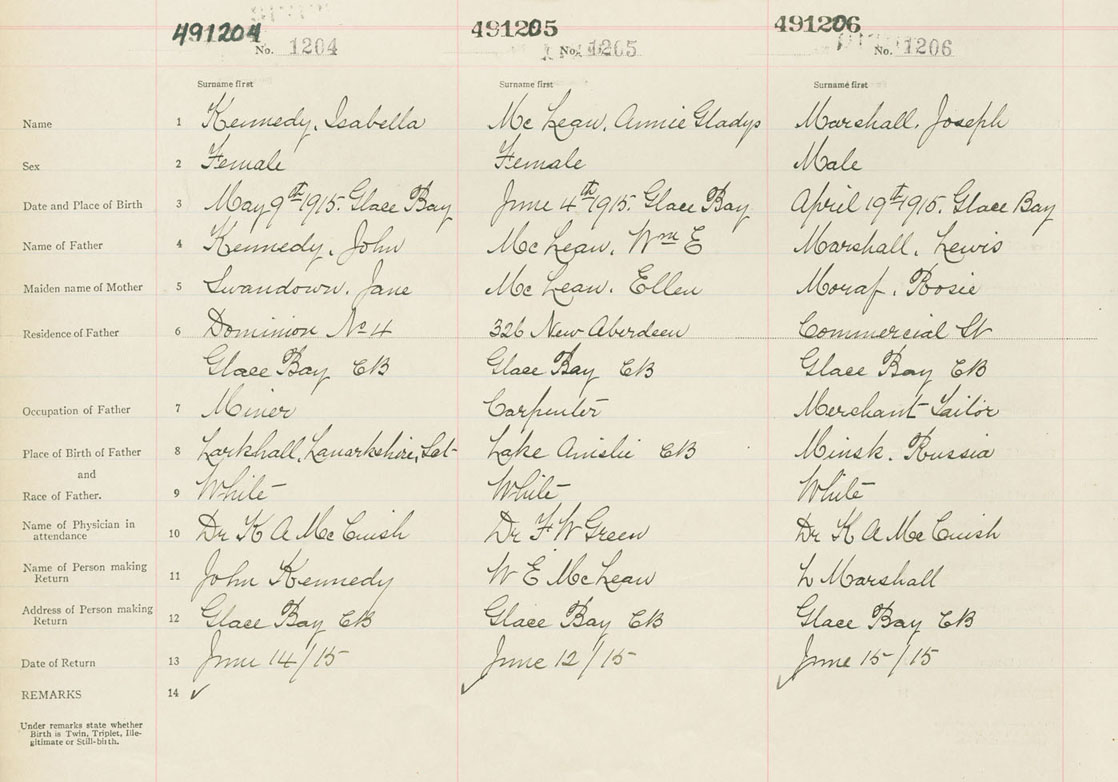 491204 491205 491206
No. 1204 No. 1205 No. 1206
Surname first Surname first Surname first
Name 1 Kennedy, Isabella Mc Lean, Annie Gladys Marshall, Joseph
Sex 2 Female Female Male
Date and Place of Birth 3 May 9th 1915. Glace Bay June 4th 1915. Glace Bay April 19th 1915. Glace Bay
Name of Father 4 Kennedy, John Mc Lean, Wm E Marshall, Lewis
Maiden name of Mother 5 Swandown, Jane Mc Lean, Ellen Rosie
Residence of Father 6 Dominion No 4 326 New Aberdeen Commercial St
Glace Bay CB Glace Bay CB Glace Bay CB
Occupation of Father 7 Miner Carpenter Merchant Tailor
Place of Birth of Father 8 Larkhall, Lanarkshire, Lake Ainslie CB Minsk, Russia
and
Race of Father. 9 White White White
Name of Physician in
attendance 10 Dr K A Mc Cuish Dr F W Green Dr K A Mc Cuish
Name of Person making
Return 11 John Kennedy W E Mc Lean L Marshall
Address of Person making
Return 12 Glace Bay CB Glace Bay CB Glace Bay CB
Date of Return 13 June 14/15 June 12/15 June 15/15
REMARKS 14 ✓ ✓ ✓
Under remarks state whether
Birth is Twin, Triplet, Ille-
gitimate or Still-birth.